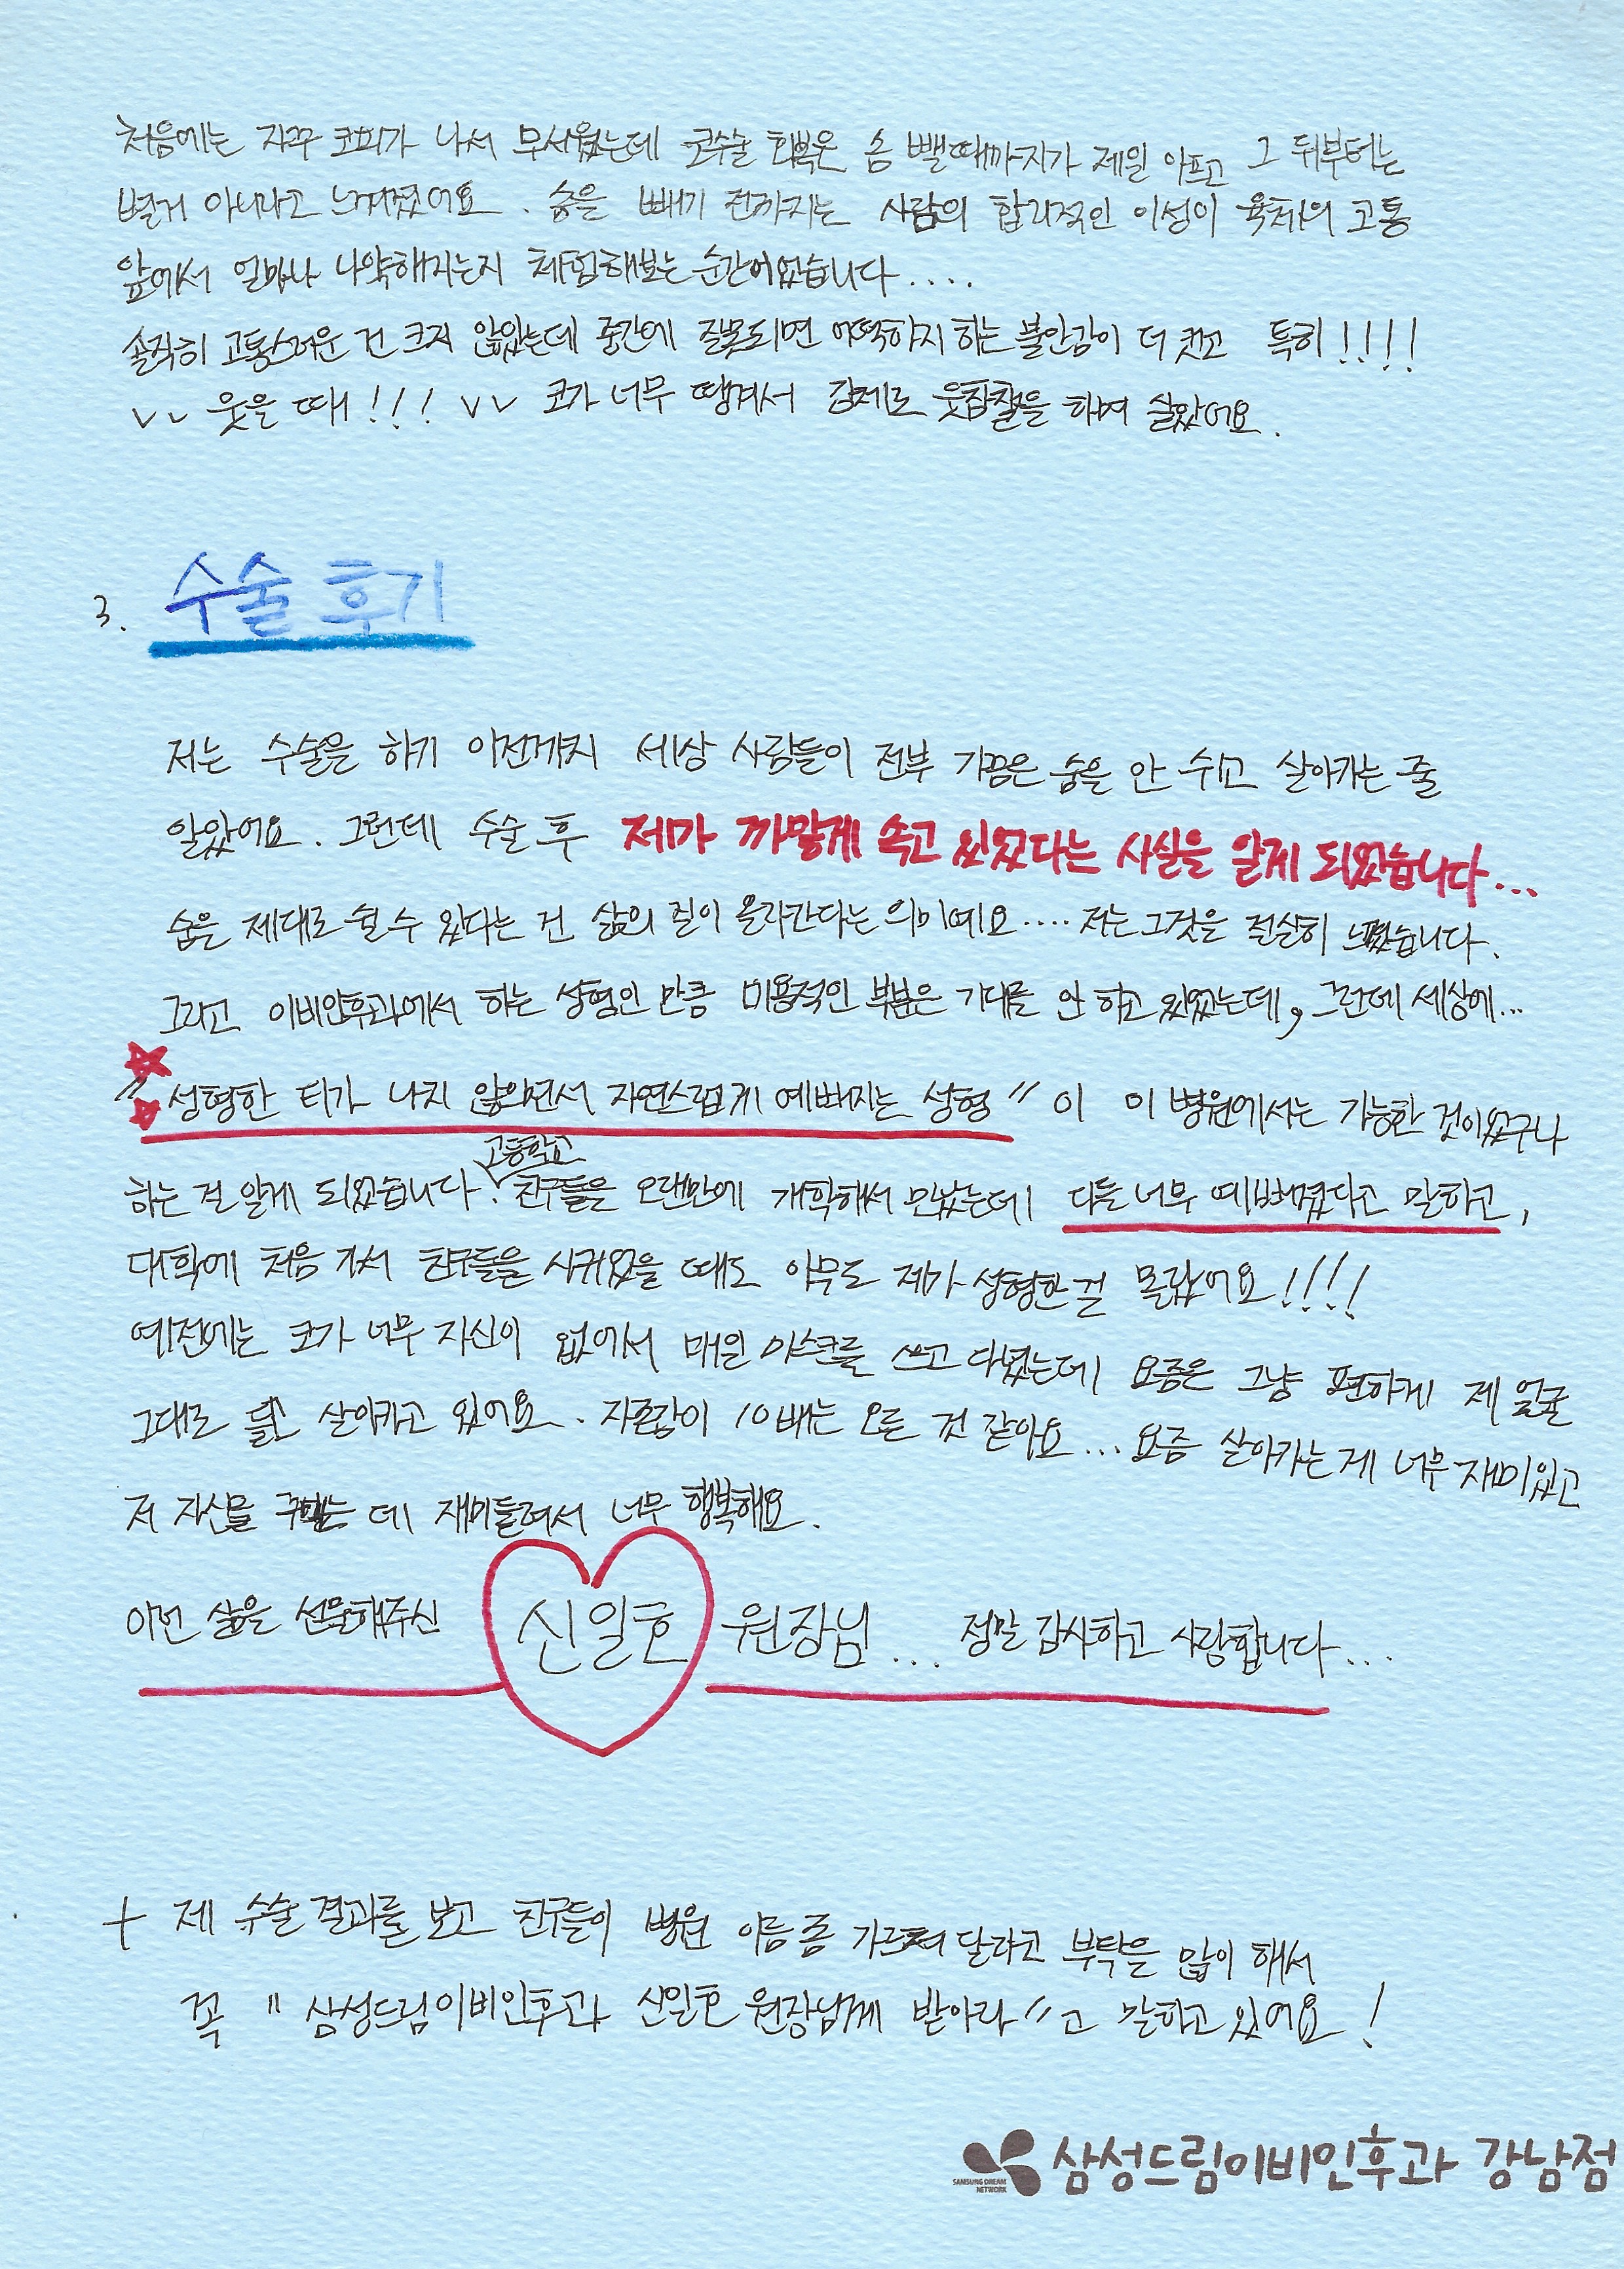 처음에는 자꾸 코피가 나서 무서웠는데 코수술 회복은 솜 뺄때까지가 제일 아프고 그 뒤부터는
별거 아니라고 느껴졌어요. 솜을 빼기 전까지는 사람의 합리적인 이성이 육체의 고통
앞에서 얼마나 나약해지는지 체험해보는 순간이었습니다....
솔직히 고통스러운 건 크지 않았는데 중간에 잘못되면 어떡하지 하는 불안감이 더 컸고 특히!!!!
vv 웃을 때!!! vv 코가 너무 땡겨서 강제로 웃참챌을 하며 살았어요.
3. 수술 후기
저는 수술을 하기 이전까지 세상 사람들이 전부 가끔은 숨을 안 쉬고 살아가는 줄
알았어요. 그런데 수술 후 제가 까맣게 속고 있었다는 사실을 알게 되었습니다...
숨을 제대로 쉴 수 있다는 건 삶의 질이 올라간다는 의미예요.... 저는 그것을 절실히 느꼈습니다.
그리고 이비인후과에서 하는 성형인 만큼 미용적인 부분은 기대를 안 하고 있었는데, 그런데 세상에...
"성형한 티가 나지 않으면서 자연스럽게 예뻐지는 성형"이 이 병원에서는 가능한 것이었구나
하는 걸 알게 되었습니다. 고등학교 친구들을 오랜만에 개학해서 만났는데 다들 너무 예뻐졌다고 말하고,
대학에 처음 가서 친구들을 사귀었을 때도 아무도 제가 성형한 걸 몰랐어요!!!!
예전에는 코가 너무 자신이 없어서 매일 마스크를 쓰고 다녔는데 요즘은 그냥 편하게 제 얼굴
그대로 들고 살아가고 있어요. 자존감이 10배는 오른 것 같아요... 요즘 살아가는 게 너무 재미있고
저 자신을 꾸미는 데 재미들려서 너무 행복해요.
이런 삶을 선물해주신 신일호 원장님... 정말 감사하고 사랑합니다...
+ 제 수술 결과를 보고 친구들이 병원 이름 좀 가르쳐 달라고 부탁을 많이 해서
꼭 "삼성드림이비인후과 신일호 원장님께 받아라"고 말하고 있어요!
SAMSUNG DREAM NETWORK 삼성드림이비인후과 강남점